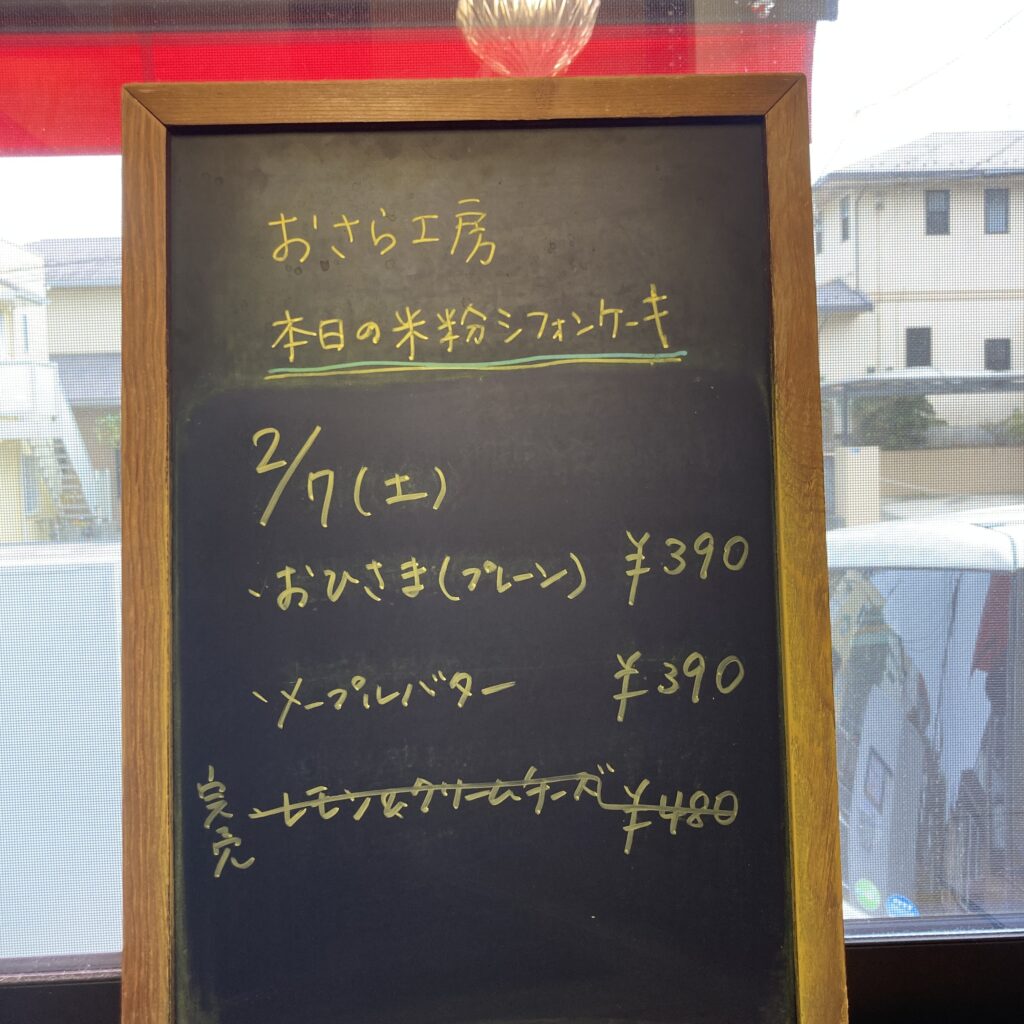 おさら工房
本日の米粉シフォンケーキ
2/7(土)
、おひさま(プレーン) ¥390
、メープルバター ¥390
完売
、レモン&クリームチーズ ¥480